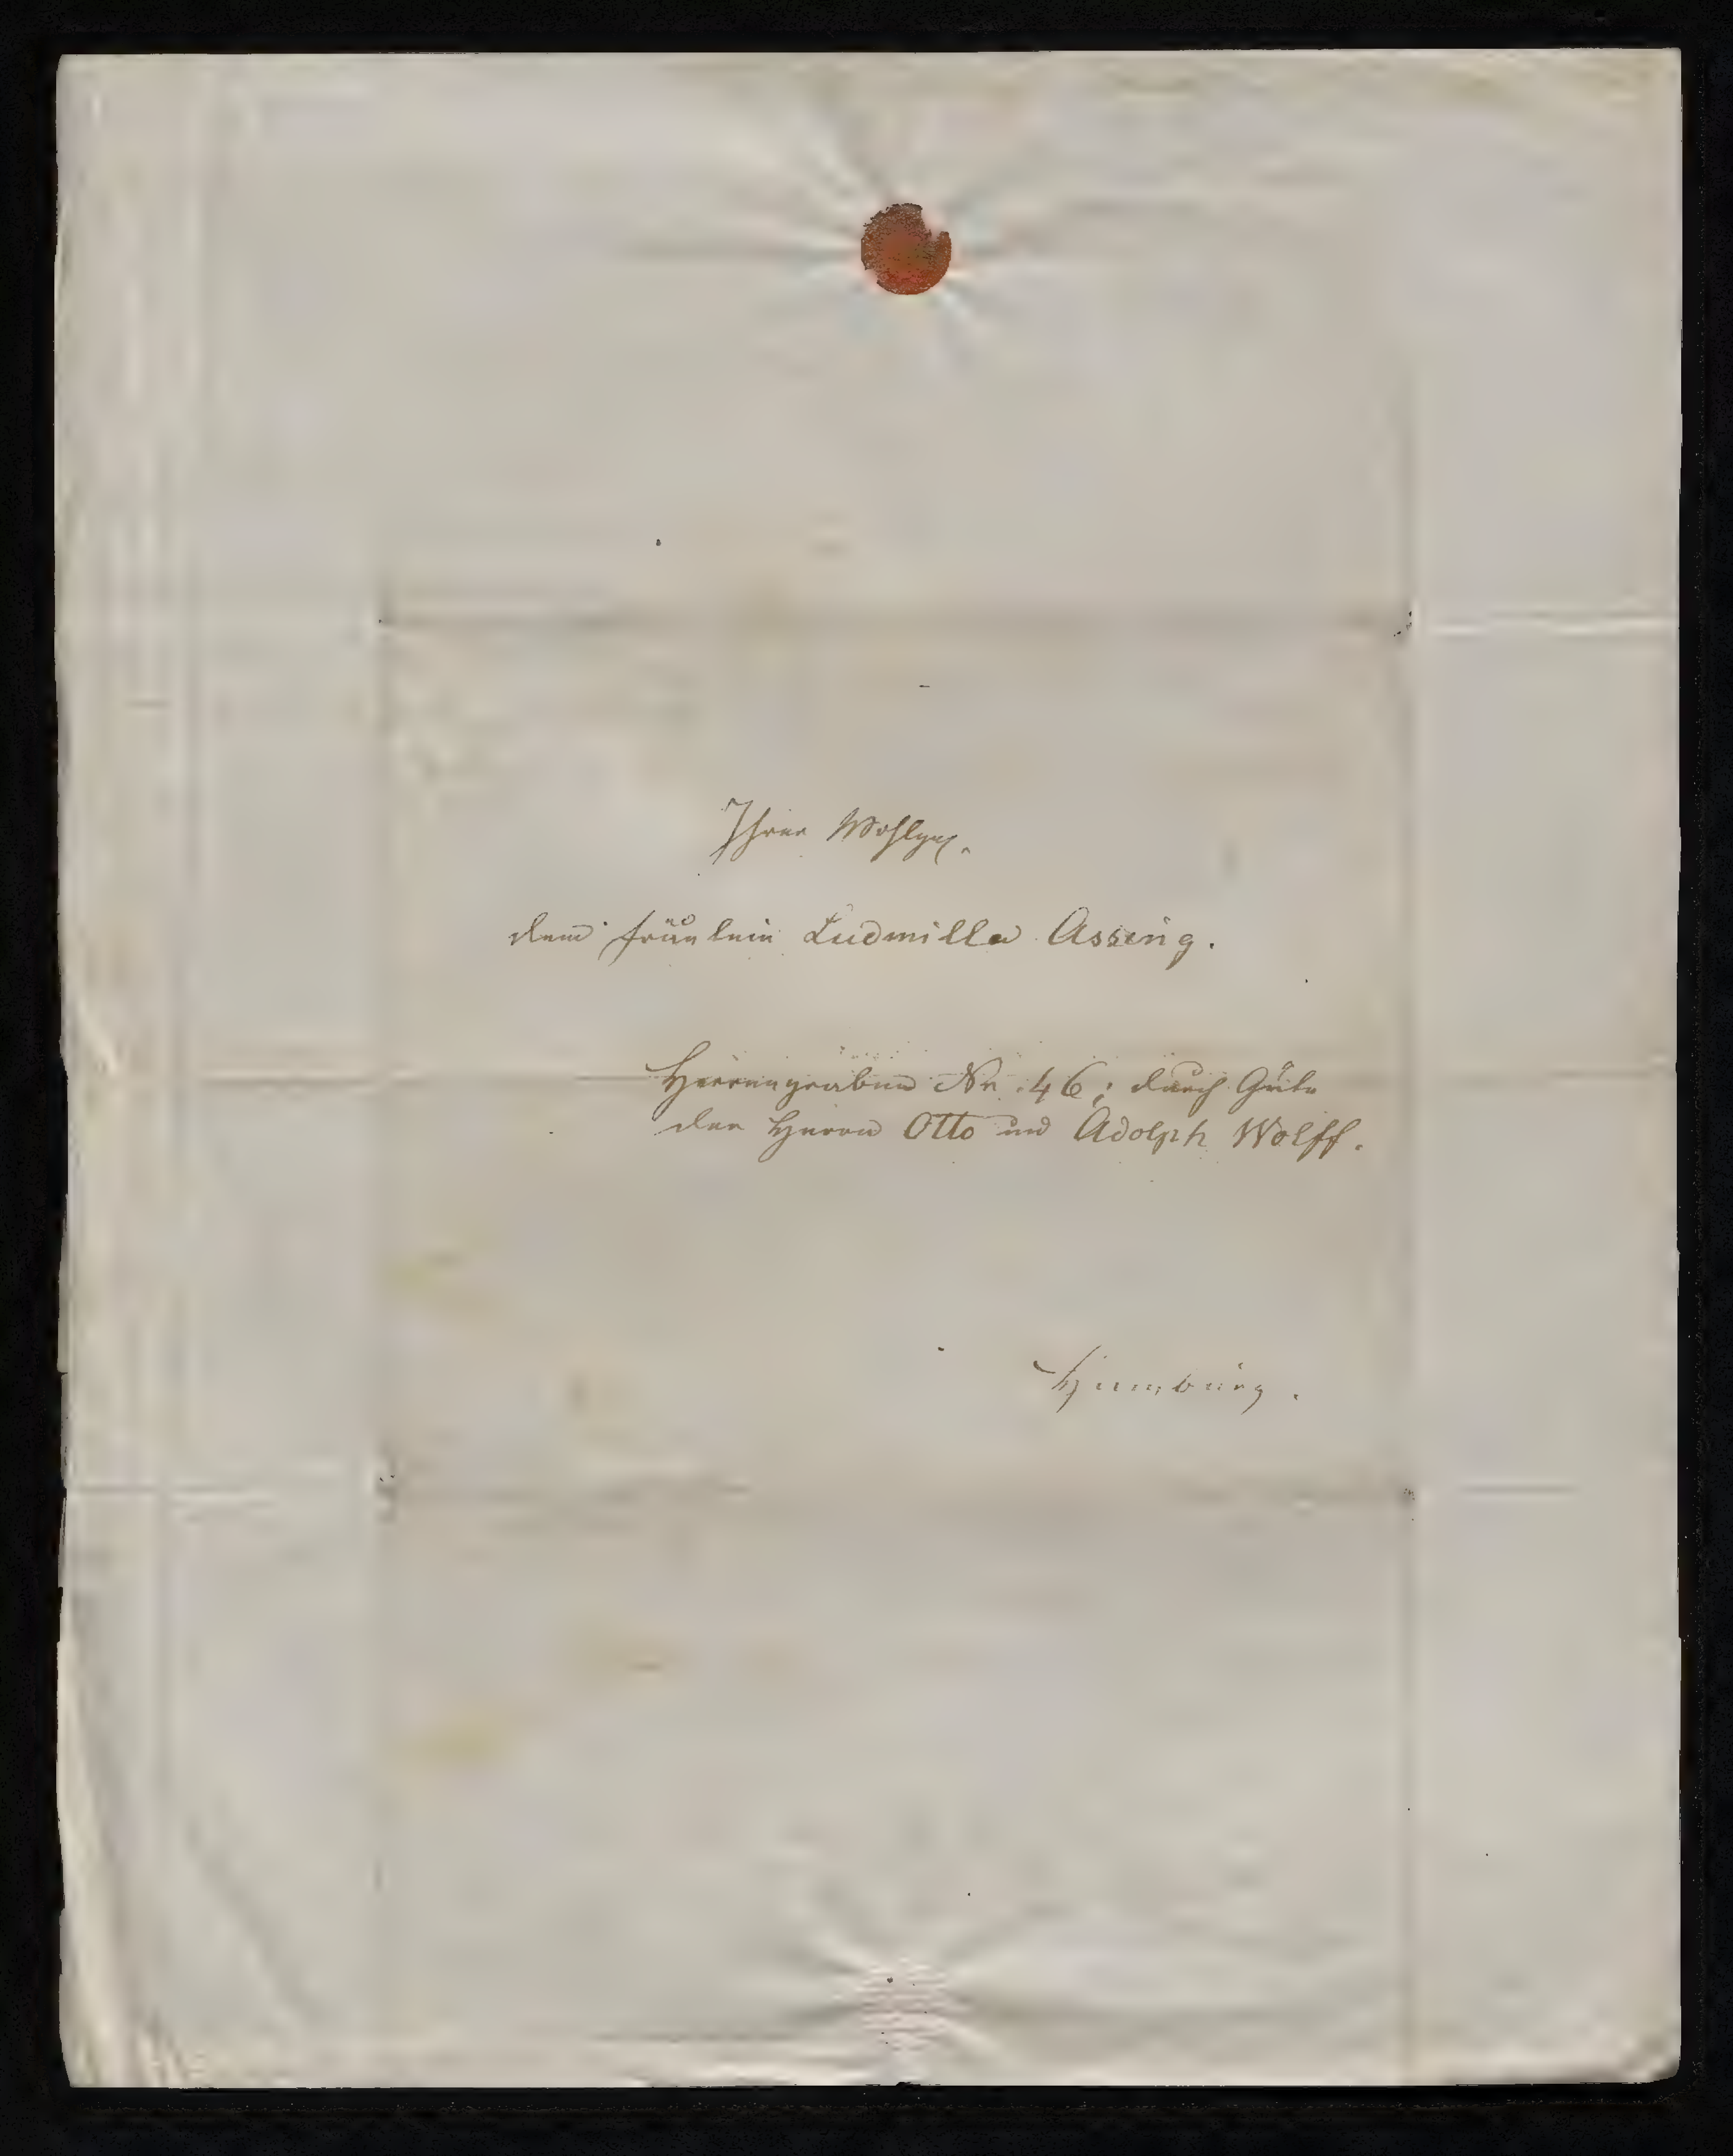 Ihrer Wohlgeb.
dem Fräulein Ludmilla Assing.
Herrengraben Nr. 46; durch Güte
der Herren Otto und Adolph Wolff.
Hamburg.